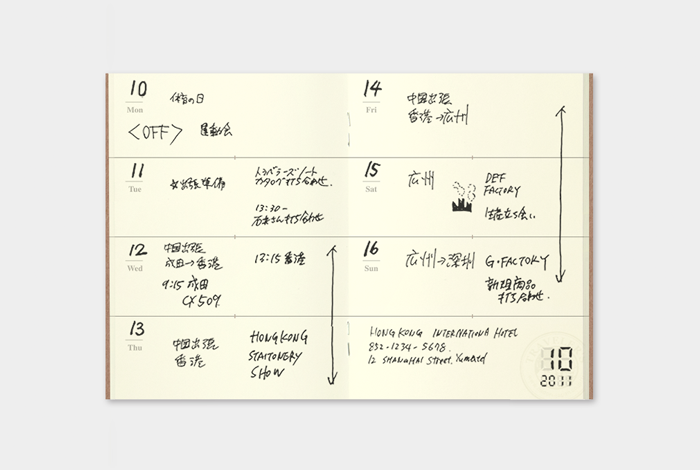 10
Mon
体育の日
<OFF> 運動会
11
Tue
☆出張準備
トラベラーズノート
カタログ打ち合わせ.
13:30-
さん打ち合わせ
12
Wed
中国出張
成田→香港
9:15 成田
CX509.
13:15 香港
13
Thu
中国出張
香港
HONGKONG
STATIONERY
SHOW
14
Fri
中国出張
香港→広州
15
Sat
広州
DEF
FACTORY
立ち会い.
16
Sun
広州→深圳
G・FACTORY
新規商品
打ち合わせ.
HONG KONG INTERNATIONA HOTEL
852-1234-5678.
12 SHANGHAI Street,
10
2011